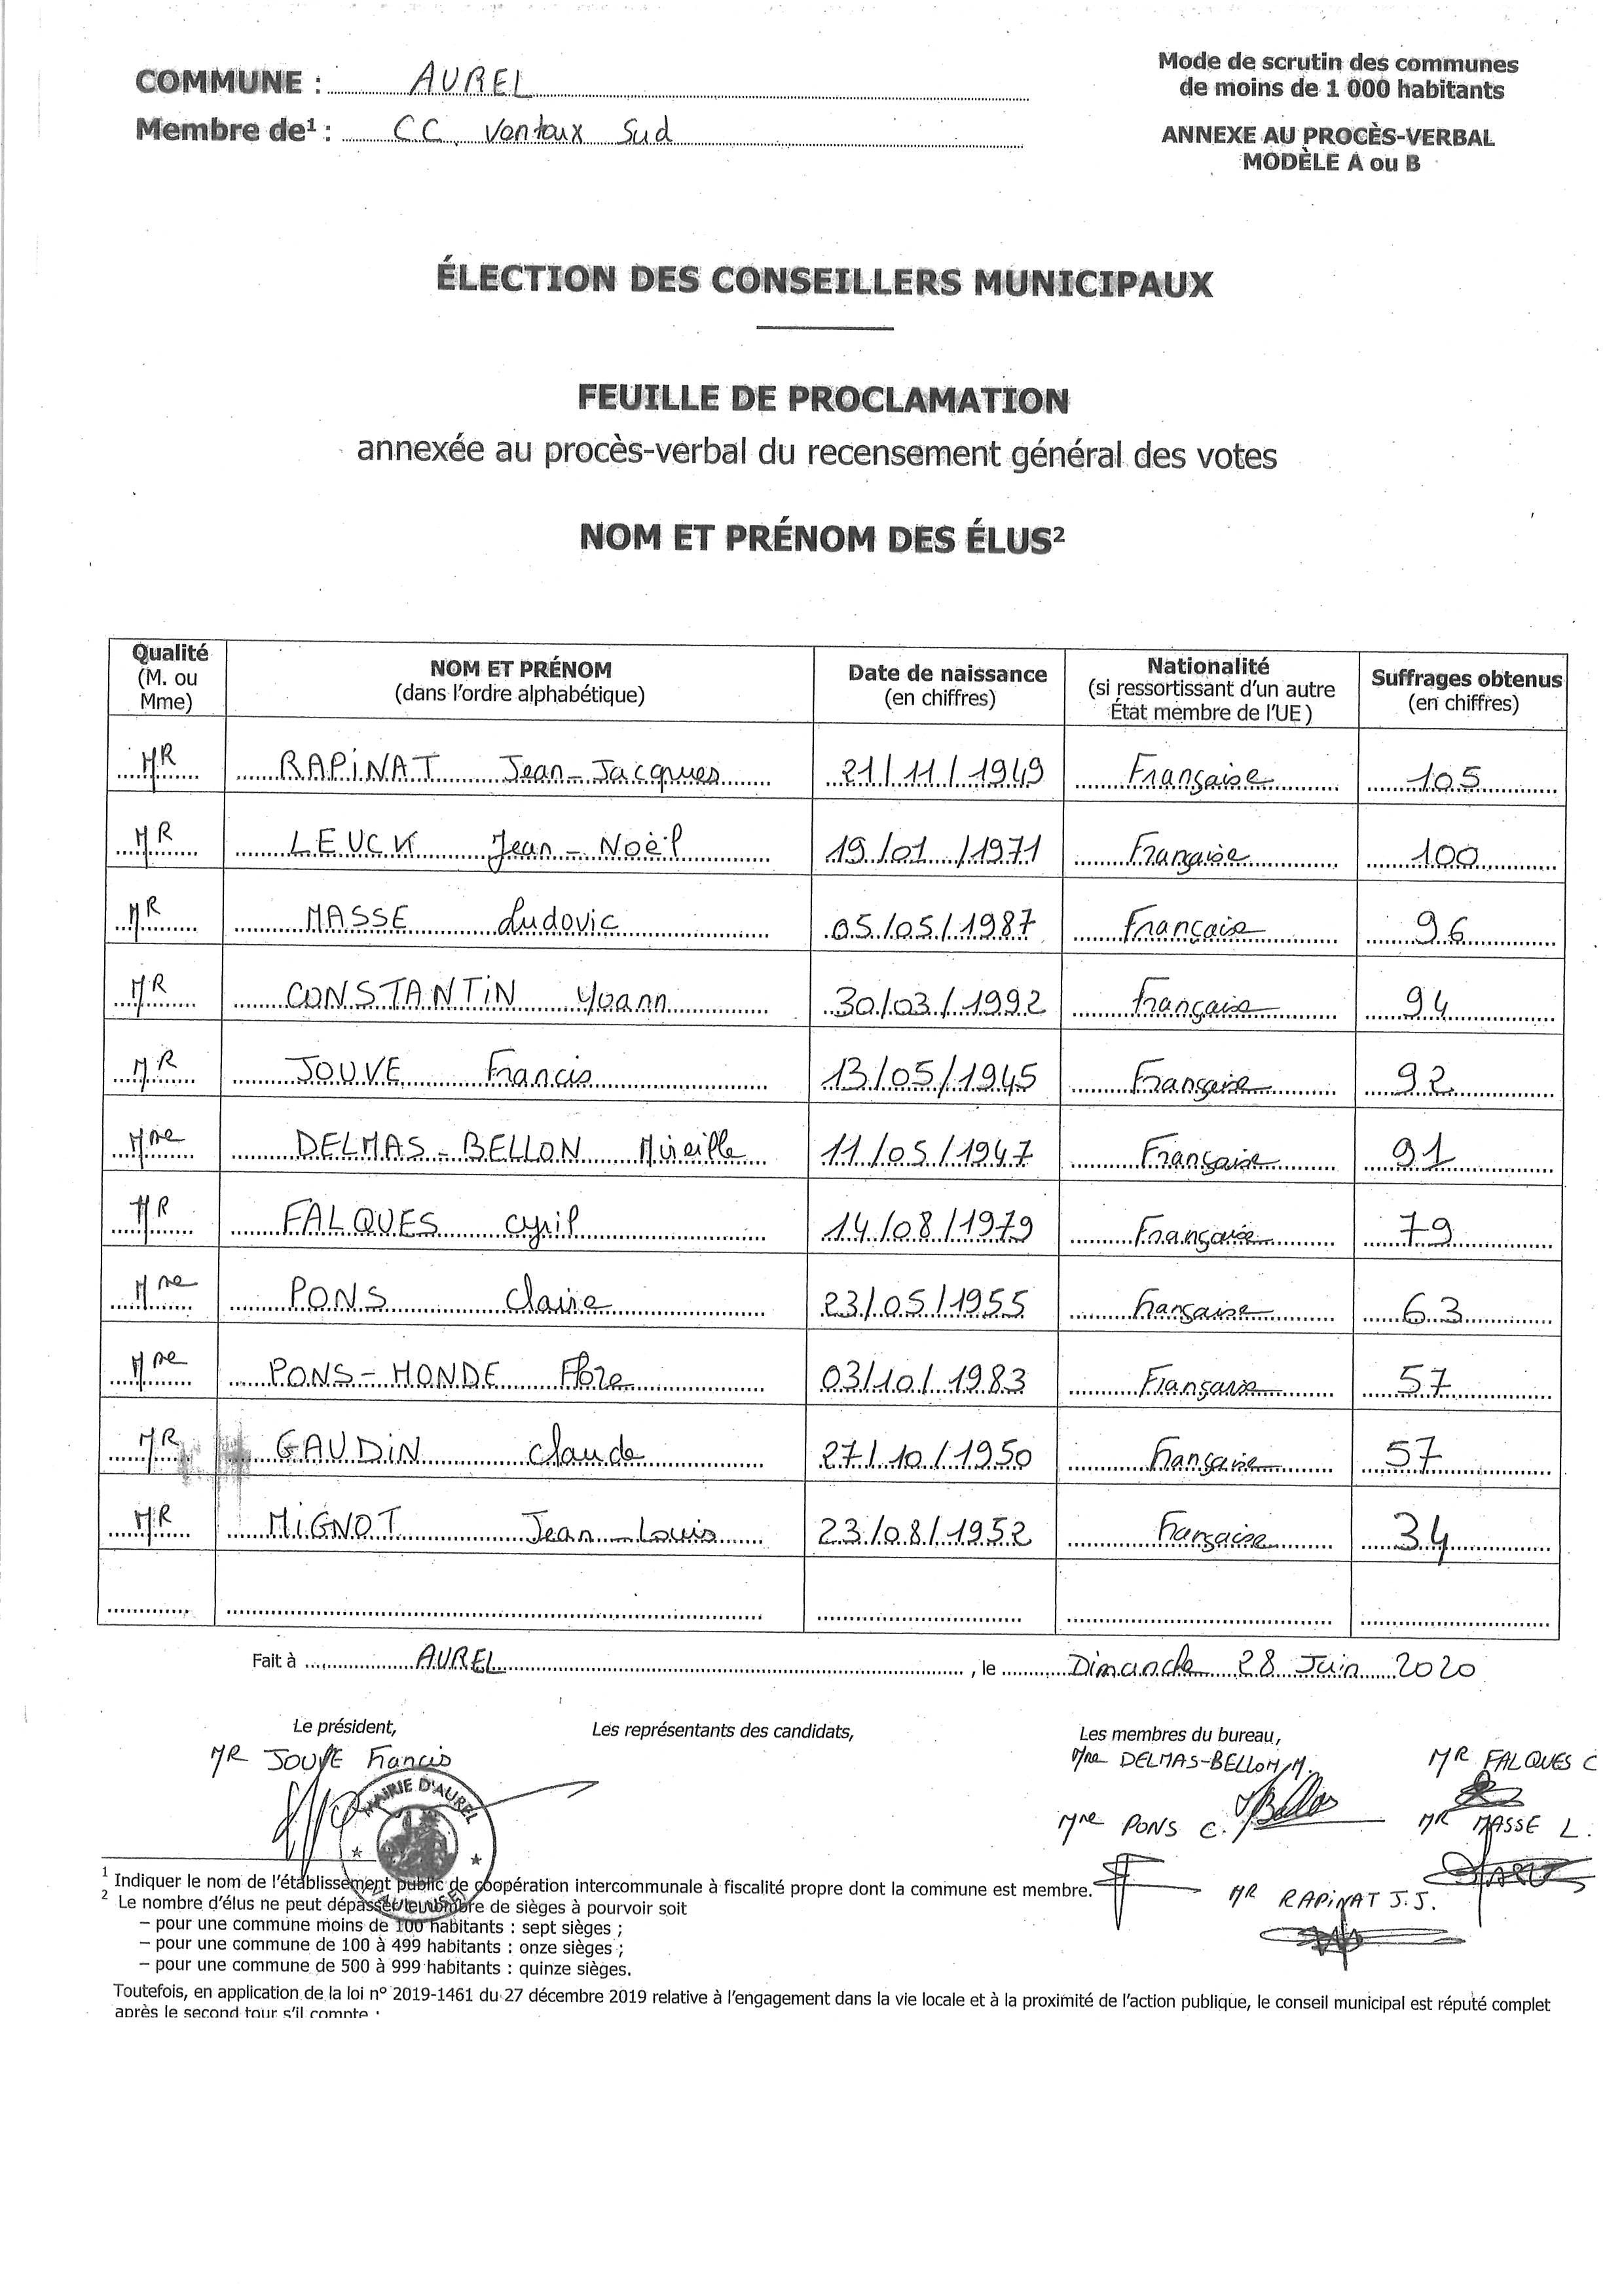 COMMUNE : AUREL
Membre de¹ : CC Ventoux Sud
Mode de scrutin des communes
de moins de 1 000 habitants
ANNEXE AU PROCÈS-VERBAL
MODÈLE A ou B
ÉLECTION DES CONSEILLERS MUNICIPAUX
FEUILLE DE PROCLAMATION
annexée au procès-verbal du recensement général des votes
NOM ET PRÉNOM DES ÉLUS²
Qualité (M. ou Mme) NOM ET PRÉNOM (dans l'ordre alphabétique) Date de naissance (en chiffres) Nationalité (si ressortissant d'un autre État membre de l'UE) Suffrages obtenus (en chiffres)
MR RAPINAT Jean-Jacques 21/11/1949 Française 105
MR LEUCK Jean-Noël 19/01/1971 Française 100
MR MASSE Ludovic 05/05/1987 Française 96
MR CONSTANTIN Yoann 30/03/1992 Française 94
MR JOUVE Francis 13/05/1945 Française 92
Mme DELMAS-BELLON Mireille 11/05/1947 Française 91
MR FALQUES Cyril 14/08/1979 Française 79
Mme PONS Claire 23/05/1955 Française 63
Mme PONS-MONDE Flore 03/10/1983 Française 57
MR GAUDIN Claude 27/10/1950 Française 57
MR MIGNOT Jean-Louis 23/08/1952 Française 34
Fait à AUREL, le Dimanche 28 Juin 2020
Le président,
Les représentants des candidats,
Les membres du bureau,
MR JOUVE Francis
Mme DELMAS-BELLON M.
MR FALQUES C
MAIRIE D'AUREL
Mme PONS C.
MR MASSE L.
MR RAPINAT J.J.
¹ Indiquer le nom de l'établissement public de coopération intercommunale à fiscalité propre dont la commune est membre.
² Le nombre d'élus ne peut dépasser le nombre de sièges à pourvoir soit
– pour une commune moins de 100 habitants : sept sièges ;
– pour une commune de 100 à 499 habitants : onze sièges ;
– pour une commune de 500 à 999 habitants : quinze sièges.
Toutefois, en application de la loi n° 2019-1461 du 27 décembre 2019 relative à l'engagement dans la vie locale et à la proximité de l'action publique, le conseil municipal est réputé complet
après le second tour s'il compte :